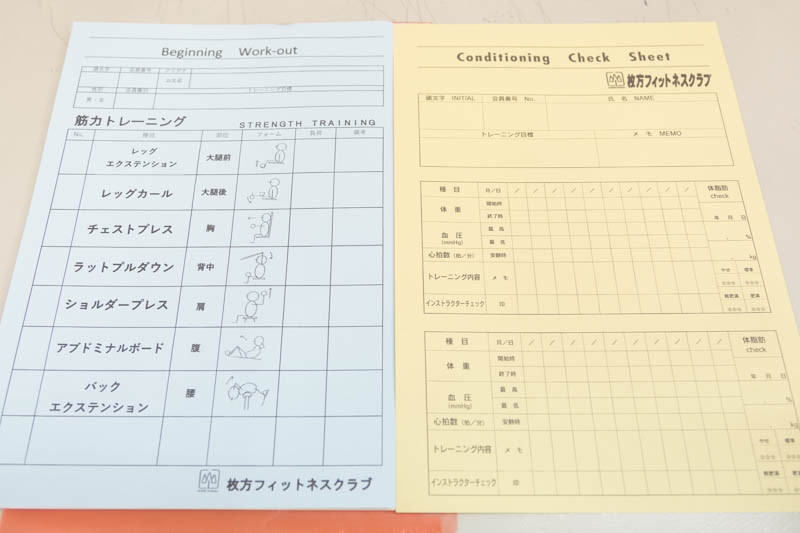 Beginning Work-out
頭文字 会員番号 フリガナ
お名前
性別 会員種別 トレーニング目標
男・女
筋力トレーニング STRENGTH TRAINING
No. 種目 部位 フォーム 負荷 備考
レッグ
エクステンション 大腿前
レッグカール 大腿後
チェストプレス 胸
ラットプルダウン 背中
ショルダープレス 肩
アブドミナルボード 腹
バック
エクステンション 腰
枚方フィットネスクラブ
Conditioning Check Sheet
枚方フィットネスクラブ
頭文字 INITIAL 会員番号 No. 氏名 NAME
トレーニング目標 メモ MEMO
種目 月/日 / / / / / / / / / 体脂肪
check
体重 開始時
終了時 年 月 日
血圧
(mmHg) 最高
最低 . %
心拍数(拍/分) 安静時 . kg
トレーニング内容 メモ やせ 標準
☆☆☆ ☆☆☆
インストラクターチェック 印 軽肥満 肥満
☆☆☆ ☆☆☆
種目 月/日 / / / / / / / / / 体脂肪
check
体重 開始時
終了時 年 月 日
血圧
(mmHg) 最高
最低 . %
心拍数(拍/分) 安静時 . kg
トレーニング内容 メモ やせ 標準
☆☆☆ ☆☆☆
インストラクターチェック 印 軽肥満 肥満
☆☆☆ ☆☆☆